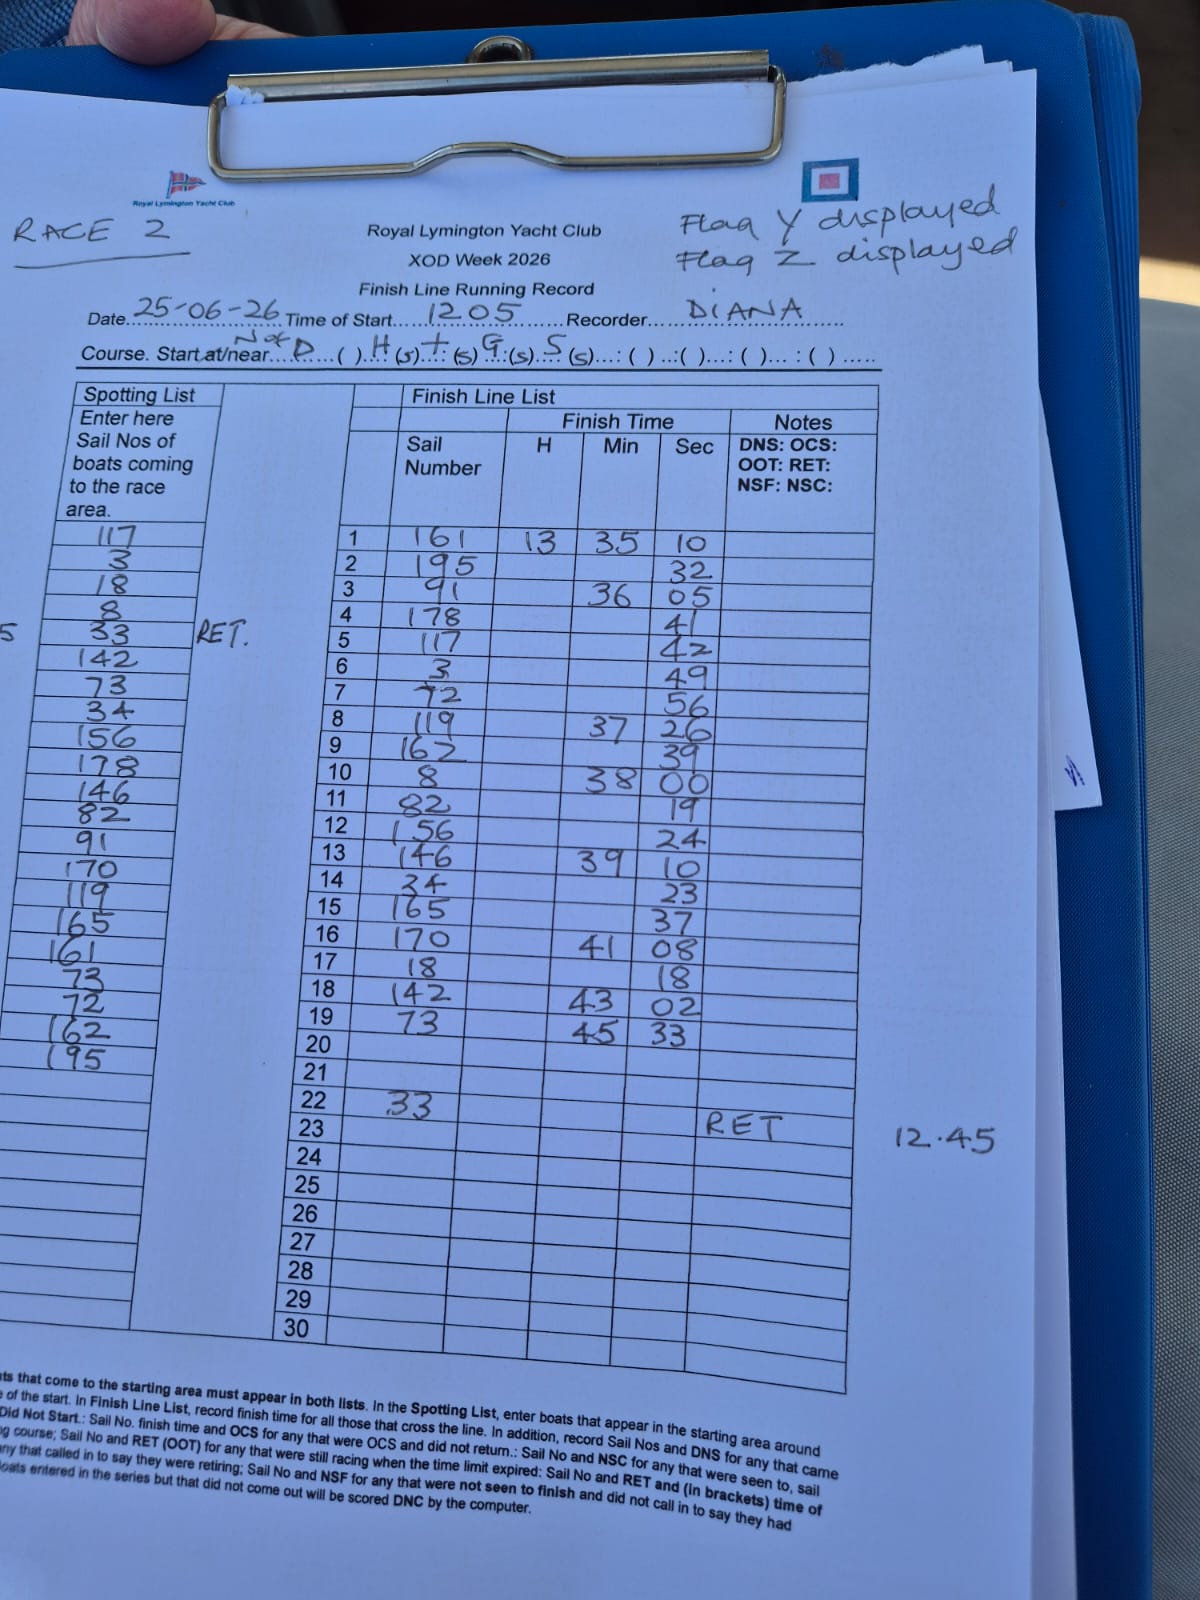 Royal Lymington Yacht Club
RACE 2
Royal Lymington Yacht Club
Flag Y displayed
XOD Week 2026
Flag Z displayed
Finish Line Running Record
Date 25-06-26 Time of Start 1205 Recorder DIANA
Course. Start at/near N of D ( ) H (s) T: (s) G:(s) S (s)...: ( ) ..:( )...: ( )... : ( ) .....
Spotting List
Enter here
Sail Nos of
boats coming
to the race
area.
117
3
18
8
5 33 RET.
142
73
34
156
178
146
82
91
170
119
165
161
73
72
162
195
Finish Line List
Finish Time Notes
Sail Number H Min Sec DNS: OCS:
OOT: RET:
NSF: NSC:
1 161 13 35 10
2 195 32
3 91 36 05
4 178 41
5 117 42
6 3 49
7 72 56
8 119 37 26
9 162 39
10 8 38 00
11 82 19
12 156 24
13 146 39 10
14 34 23
15 165 37
16 170 41 08
17 18 18
18 142 43 02
19 73 45 33
20
21
22 33
23 RET 12.45
24
25
26
27
28
29
30
ats that come to the starting area must appear in both lists. In the Spotting List, enter boats that appear in the starting area around
e of the start. In Finish Line List, record finish time for all those that cross the line. In addition, record Sail Nos and DNS for any that came
Did Not Start.: Sail No. finish time and OCS for any that were OCS and did not return.: Sail No and NSC for any that were seen to, sail
g course; Sail No and RET (OOT) for any that were still racing when the time limit expired: Sail No and RET and (in brackets) time of
any that called in to say they were retiring; Sail No and NSF for any that were not seen to finish and did not call in to say they had
oats entered in the series but that did not come out will be scored DNC by the computer.